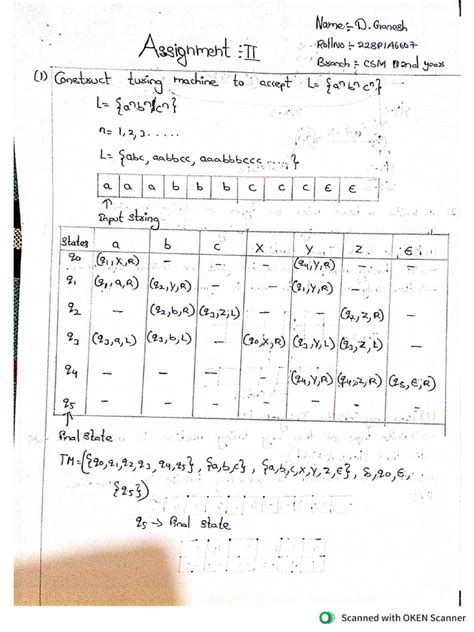 Name:- D. Ganesh
Assignment :- II
Rollno :- 228P1A6607
Branch :- CSM IInd year
(1) Construct turing machine to accept L= {aⁿ bⁿ cⁿ}
L= {aⁿ bⁿ cⁿ}
n= 1, 2, 3 .....
L= {abc, aabbcc, aaabbbccc ....}
a a a b b b c c c ε ε
↑
Input string
States a b c X Y Z ε
q0 (q1,X,R) - - - (q4,Y,R) - -
q1 (q1,a,R) (q2,Y,R) - - (q1,Y,R) - -
q2 - (q2,b,R) (q3,Z,L) - - (q2,Z,R) -
q3 (q3,a,L) (q3,b,L) - (q0,X,R) (q3,Y,L) (q3,Z,L) -
q4 - - - - (q4,Y,R) (q4,Z,R) (q5,ε,R)
q5 - - - - - - -
↑
final state
TM=({q0,q1,q2,q3,q4,q5}, {a,b,c}, {a,b,c,X,Y,Z,ε}, δ, q0, ε,
{q5})
q5 → final state
Scanned with OKEN Scanner